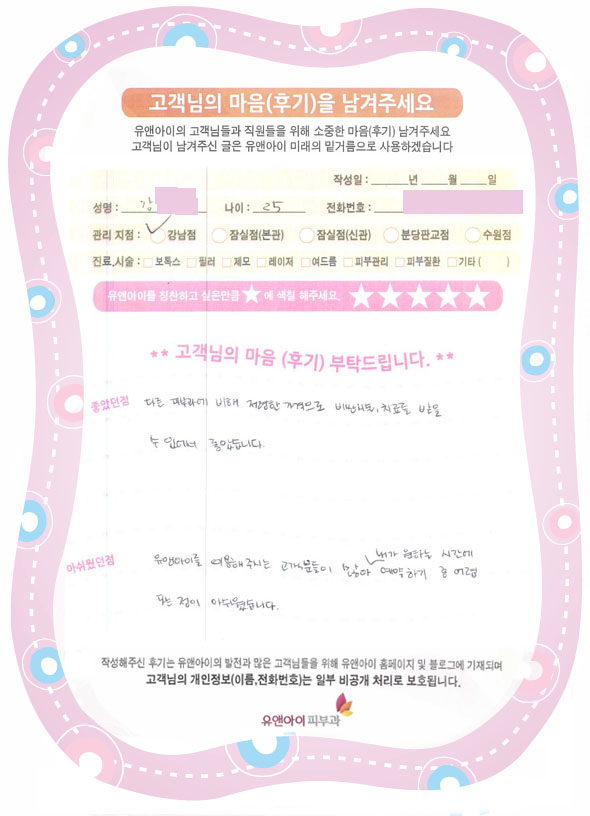 고객님의 마음(후기)을 남겨주세요
유앤아이의 고객님들과 직원들을 위해 소중한 마음(후기) 남겨주세요
고객님이 남겨주신 글은 유앤아이 미래의 밑거름으로 사용하겠습니다
작성일 : 년 월 일
성명 : 강 나이 : 25 전화번호 :
관리 지점 : 강남점 잠실점(본관) 잠실점(신관) 분당판교점 수원점
진료.시술 : 보톡스 필러 제모 레이저 여드름 피부관리 피부질환 기타 ( )
유앤아이를 칭찬하고 싶은만큼 ★ 에 색칠 해주세요. ★★★★★
** 고객님의 마음 (후기) 부탁드립니다. **
좋았던점 다른 피부과에 비해 저렴한 가격으로 비싼시술, 치료를 받을
수 있어서 좋았습니다.
아쉬웠던점 유앤아이를 이용해주시는 고객분들이 많아 내가 원하는 시간에
예약하기 좀 어렵
다는 점이 아쉬웠습니다.
작성해주신 후기는 유앤아이의 발전과 많은 고객님들을 위해 유앤아이 홈페이지 및 블로그에 기재되며
고객님의 개인정보(이름,전화번호)는 일부 비공개 처리로 보호됩니다.
유앤아이피부과